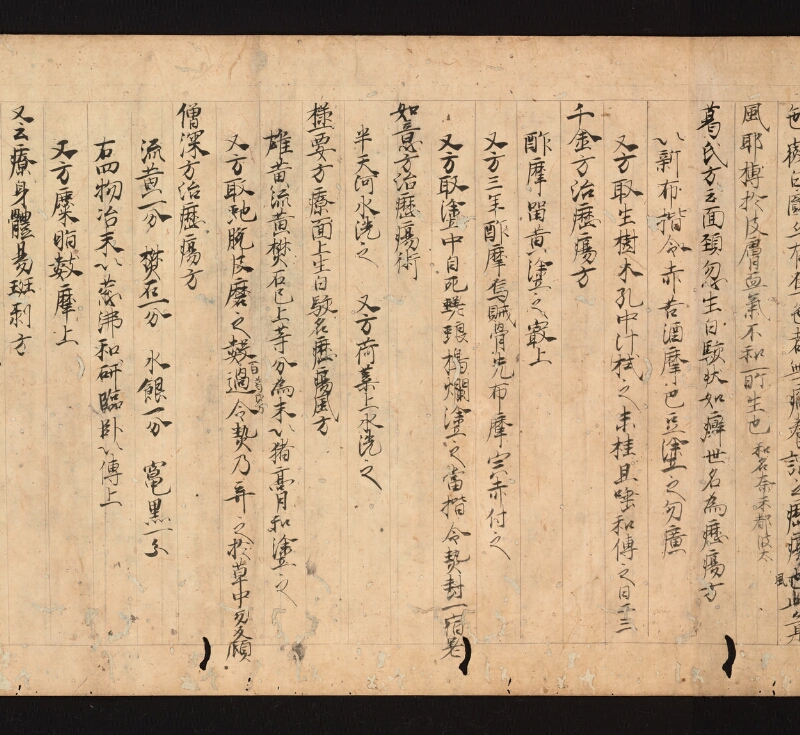 風耶搏於皮膚血氣不和所生也 和名奈末都波太
葛氏方云面頚忽生白駮狀如癬世名為癧瘍方
以新布揩令赤苦酒摩巴豆塗之勿廣
又方取生樹木孔中汁拭之末桂且唾和傅之日再三
千金方治癧瘍方
酢摩留黄塗之㝡上
又方三年酢摩烏賊骨先布摩完赤付之
又方取塗中自死蜣蜋搗爛塗之當揩令熱封一宿差
如意方治癧瘍術
半天河水洗之 又方荷葉上水洗之
極要方療面上生白駮名癧瘍風方
雄黄流黄樊石已上等分為末以猪膏和塗之
又方取虵脱皮磨之數百過令熱乃弃之於草中勿顧
僧深方治癧瘍方
流黄一分 樊石一分 水銀一分 竈黒一分
右四物冶末以葱沸和研臨卧以傅上
又方糜脂數摩上
又云療身體易斑剥方